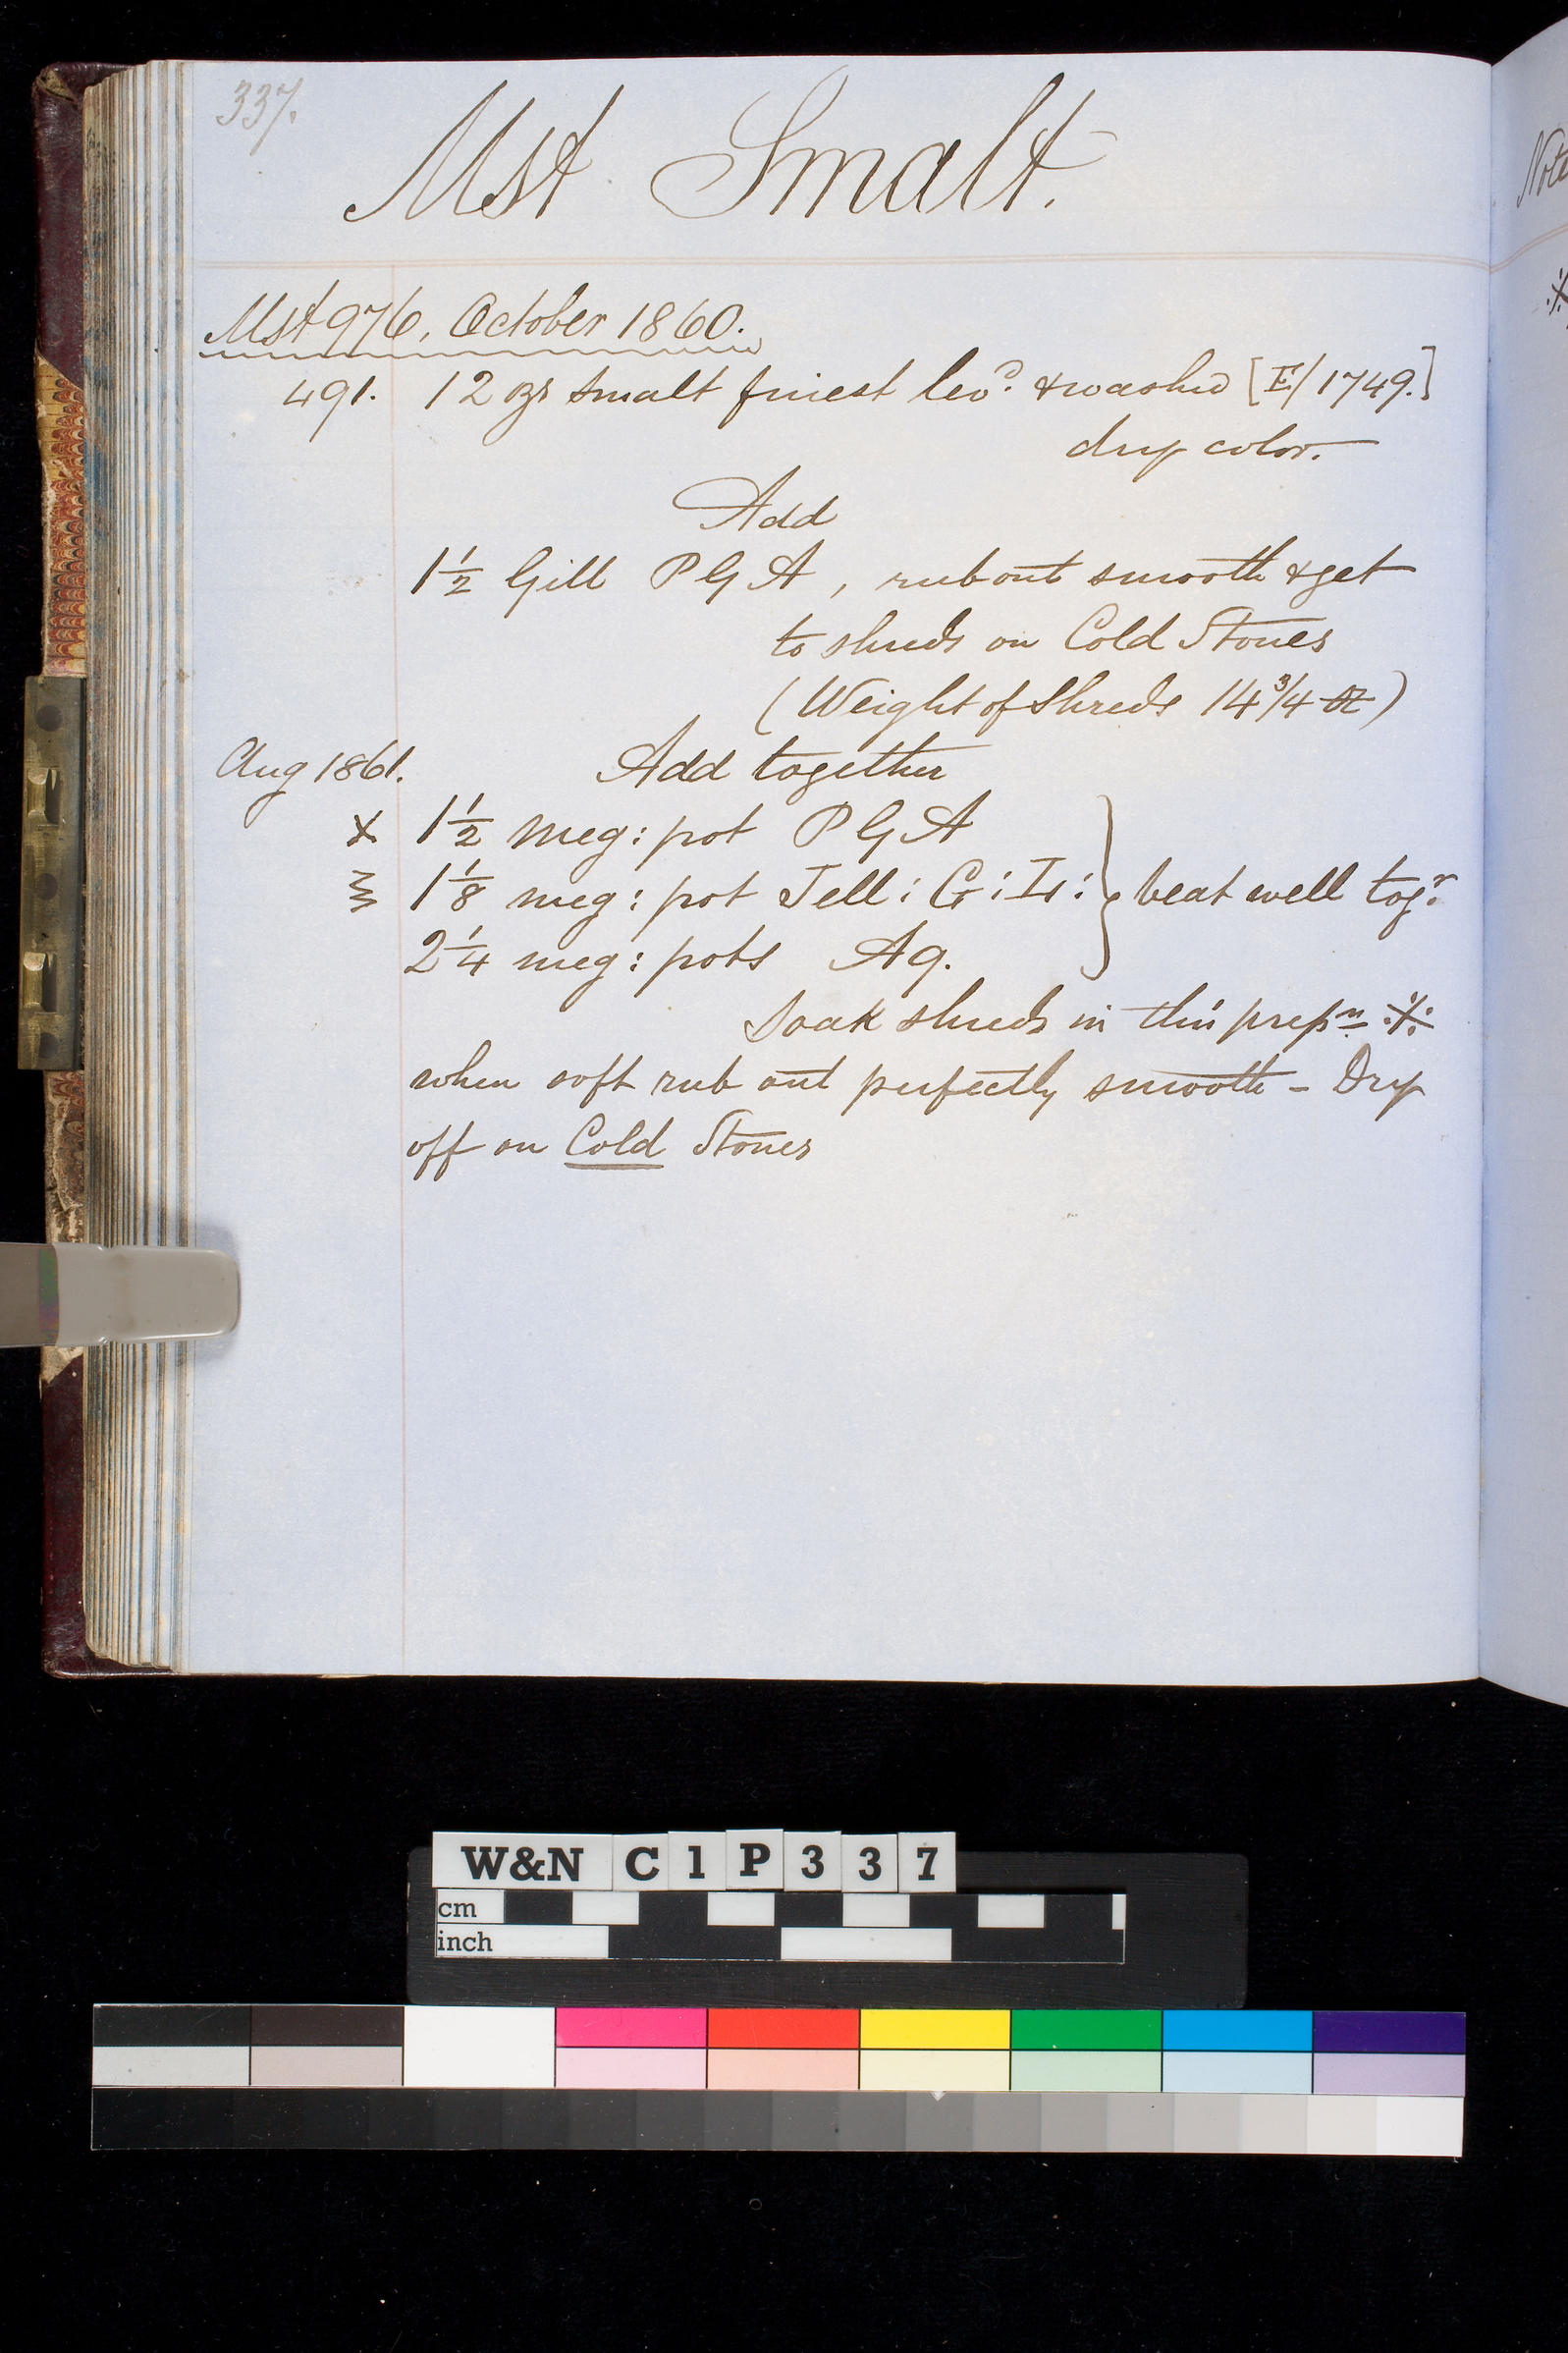 337.
Mst Smalt.
Mst 976, October 1860.
491. 12 ozs Smalt finest levd. & washed [E/1749.]
dry color.
Add
1½ Gill P G A, rub out smooth & get
to shreds on Cold Stones
(Weight of Shreds 14 3/4 oz)
Aug 1861. Add together
1½ meg: pot P G A
1⅛ meg: pot Jell: G: Is: } beat well togr.
2¼ meg: pots Aq.
Soak shreds in this prepn ※
when soft rub out perfectly smooth - Dry
off on Cold Stones
Note
※
W&N C1P337
cm
inch